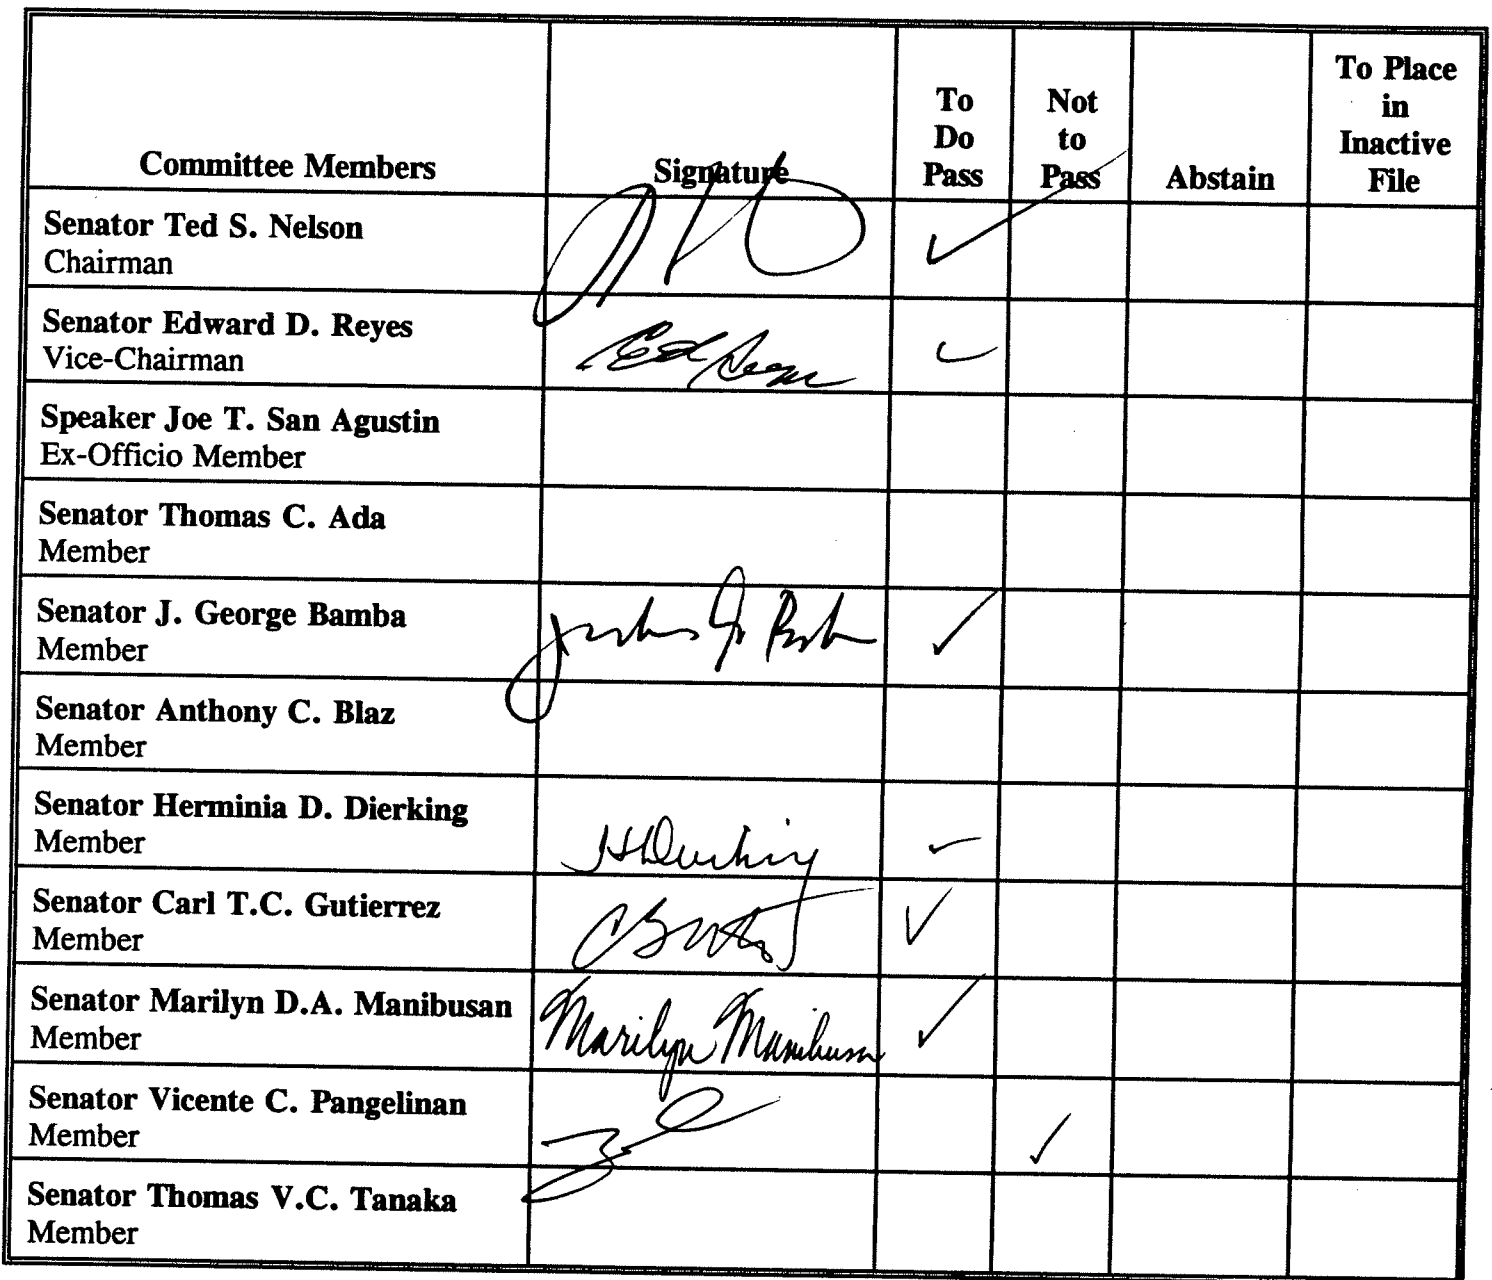 Committee Members
Signature
To
Do
Pass
Not
to
Pass
Abstain
To Place
in
Inactive
File
Senator Ted S. Nelson
Chairman
✓
Senator Edward D. Reyes
Vice-Chairman
Ed Reyes
✓
Speaker Joe T. San Agustin
Ex-Officio Member
Senator Thomas C. Ada
Member
Senator J. George Bamba
Member
✓
Senator Anthony C. Blaz
Member
Senator Herminia D. Dierking
Member
HDierking
✓
Senator Carl T.C. Gutierrez
Member
✓
Senator Marilyn D.A. Manibusan
Member
Marilyn Manibusan
✓
Senator Vicente C. Pangelinan
Member
✓
Senator Thomas V.C. Tanaka
Member